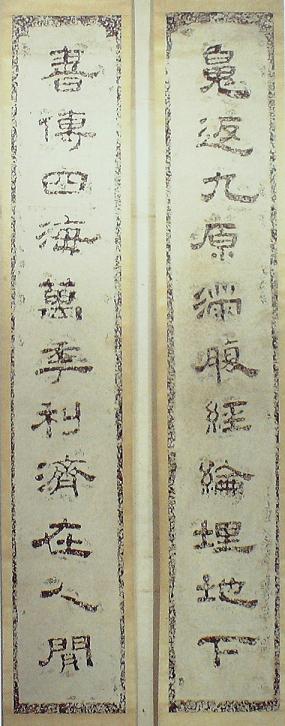 鬼返九原滿腹經綸埋地下
書傳四海萬季利濟在人間